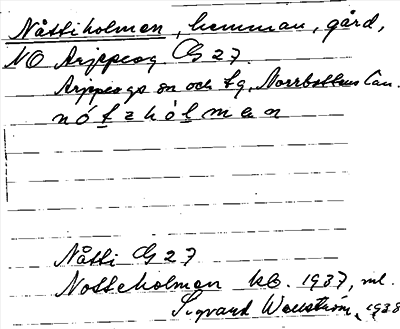 Nåttiholmen, hemman, gård,
NO Arjepeog G 27.
Arjepeogs sn och tg, Norrbottens län.
nótzhólmen
Nåtti G 27
Notteholmen kb. 1937, ml.
Sigvard Wallström, 1938